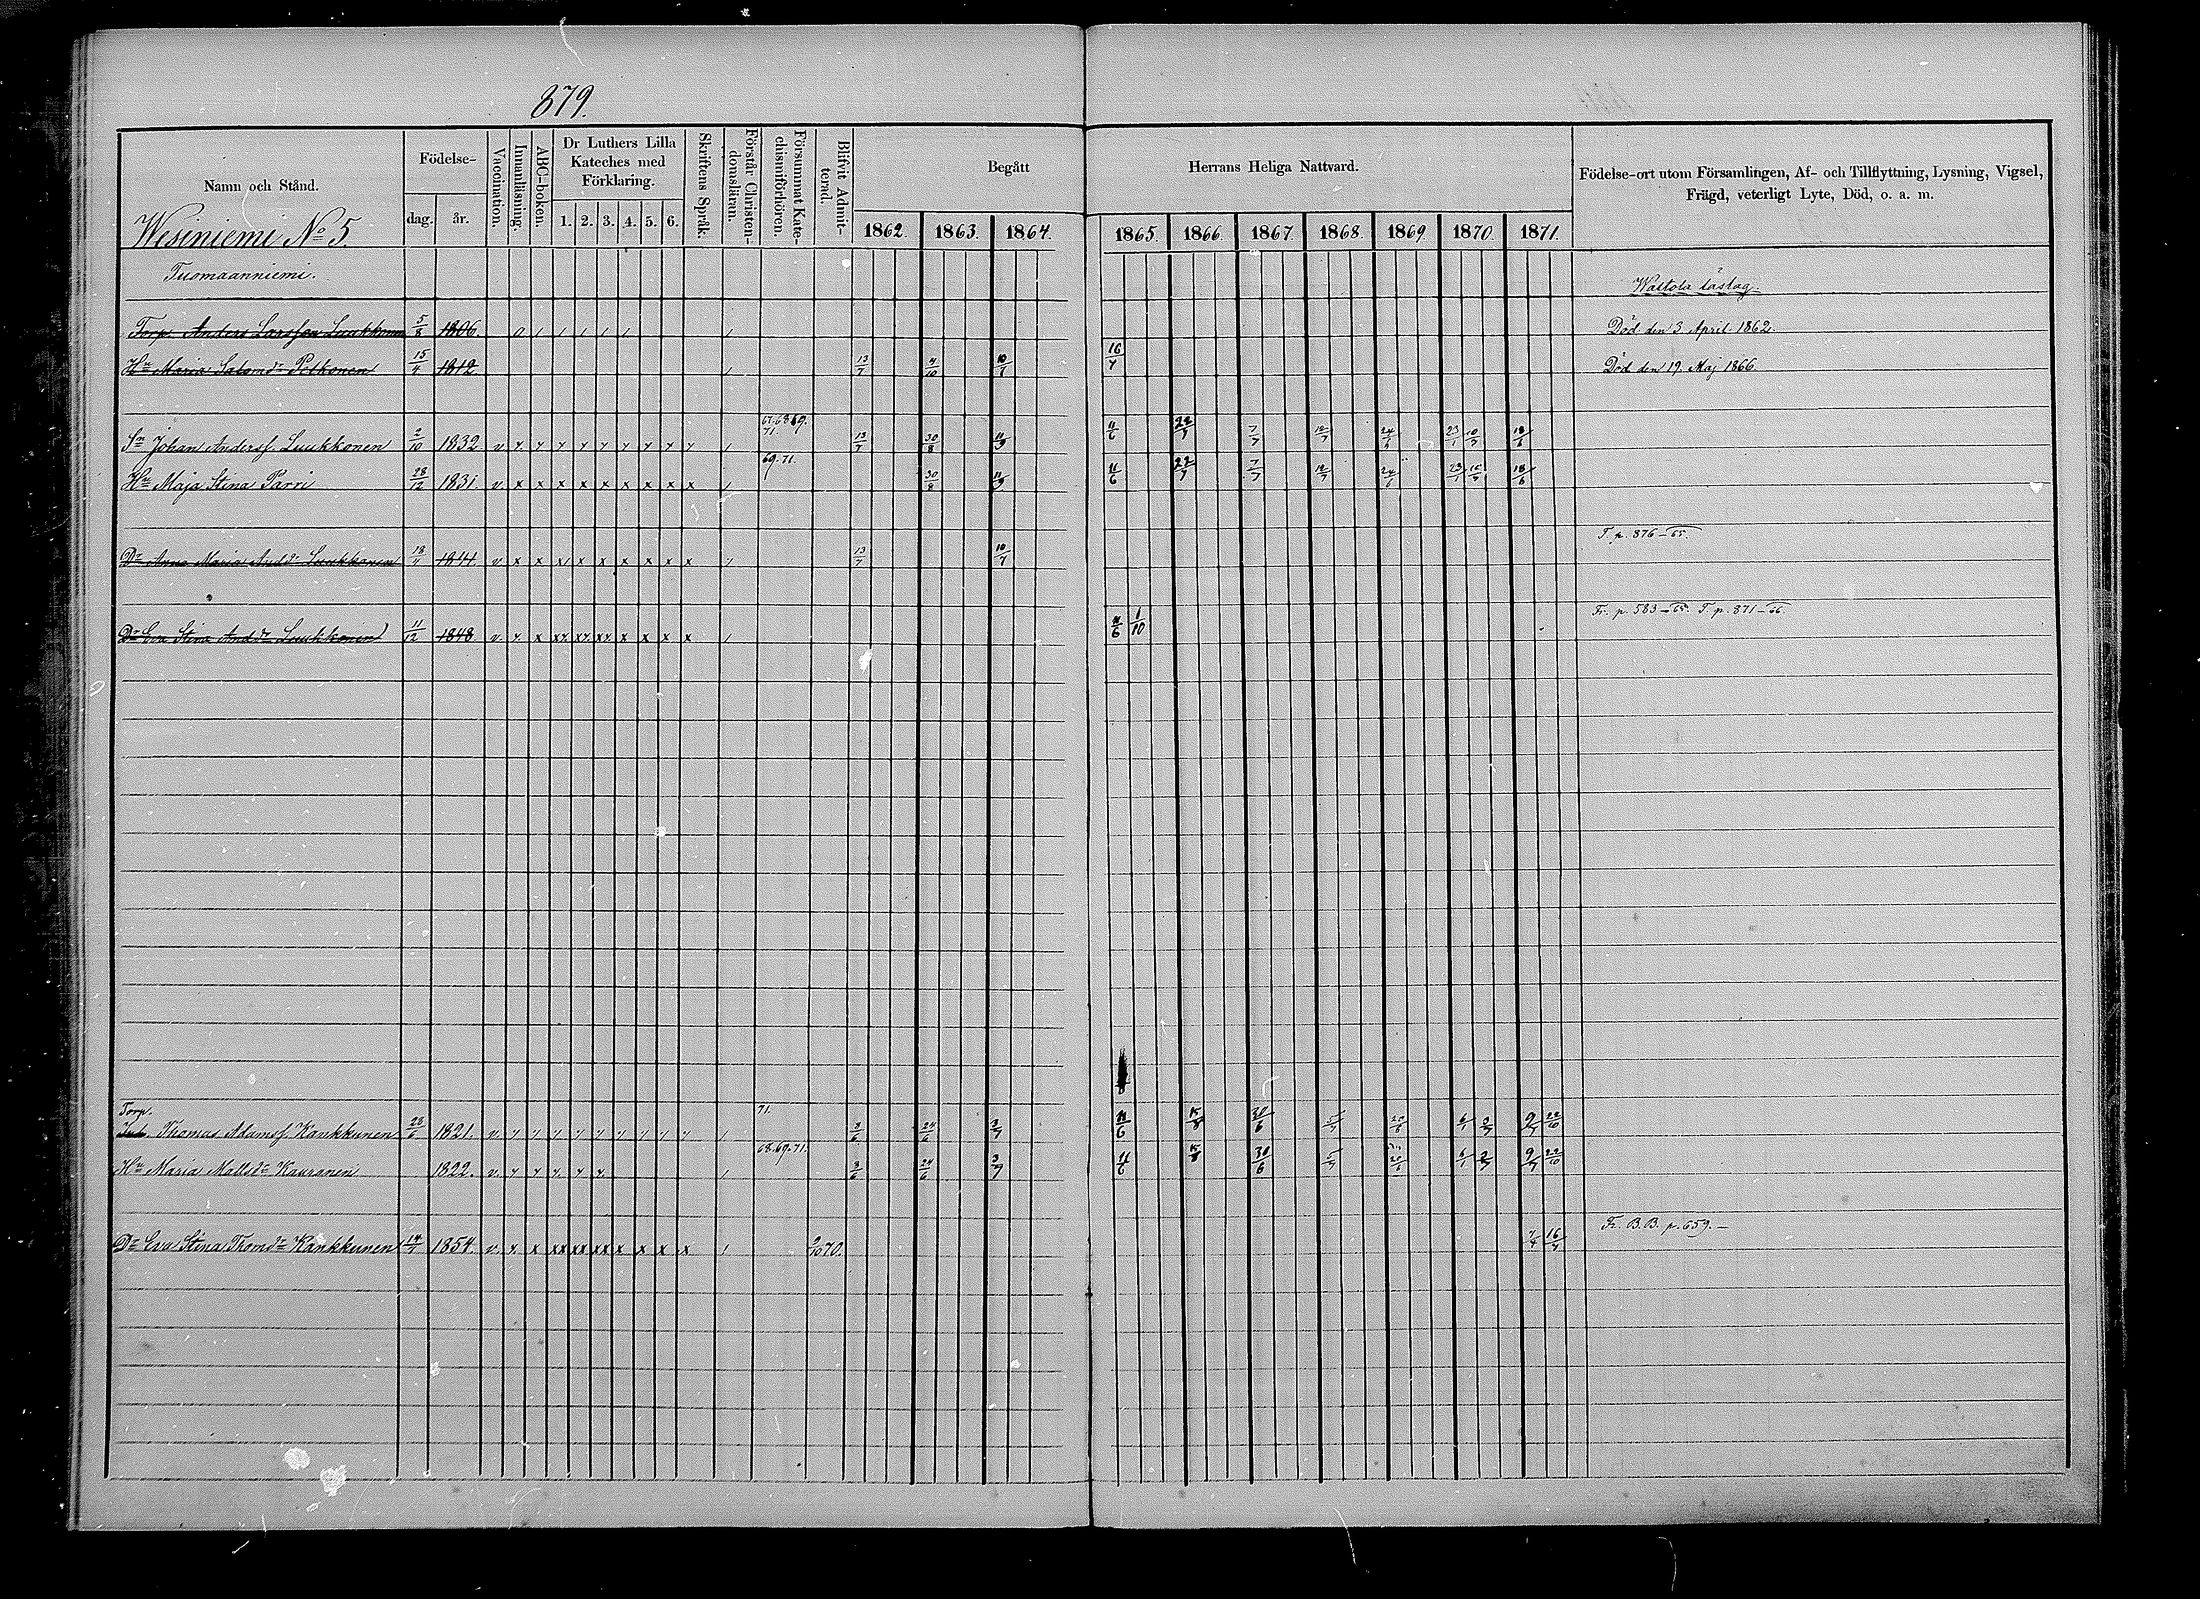 879.
Namn och Stånd.
Födelse-
dag. år.
Vaccination.
Innanläsning.
ABC-boken.
Dr Luthers Lilla Kateches med Förklaring.
1. 2. 3. 4. 5. 6.
Skriftens Språk.
Förstår Christendomsläran.
Försummat Katechismiförhören.
Blifvit Admitterad.
Begått Herrans Heliga Nattvard.
1862. 1863. 1864. 1865. 1866. 1867. 1868. 1869. 1870. 1871.
Födelse-ort utom Församlingen, Af- och Tillflyttning, Lysning, Vigsel,
Frägd, veterligt Lyte, Död, o. a. m.
Wesiniemi No 5.
Tuomaanniemi.
Torp. Anders Larsson Luukkonen 5/8 1806. Död den 3 April 1862.
Hu Maria Salomdr Pitkonen 15/4 1812 13/7 4/10 10/7 16/7 Död den 19. Maj 1866
67.68.69.
71.
Sn Johan Andersf. Luukkonen 2/10 1832. v 13/7 30/8 11/9 11/6 22/7 7/7 12/7 24/6 23/1 10/7 18/6
69.71.
Hu Maja Stina Parri 28/12 1831. v x x x x x x x x x 30/8 11/9 11/6 22/7 7/7 12/7 24/6 23/1 18/6
T. p. 876-65.
Dr Anna Maria Anddr Luukkonen 18/4 1844. v x x x x x x x x 13/7 10/7
Fr. p. 583-65. T. p. 871-66
Dr Eva Stina Anddr Luukkonen 11/12 1848. v x x x x x 11/6 1/10
Torp.
71.
Thomas Adamsf. Kankkunen 28/6 1821. v. 3/6 24/6 3/7 11/6 15/8 30/6 5/7 20/6 6/1 9/7 22/10
68.69.71.
Hu Maria Mattsdr Kauranen 1822. v. 3/6 24/6 3/7 11/6 15/8 30/6 5/7 20/6 6/1 9/7 22/10
Fr. B.B. p. 659.-
Dr Eva Stina Thomdr Kankkunen 14/7 1854. v. x xx xx xx x x x x 2/10 70. 16/7